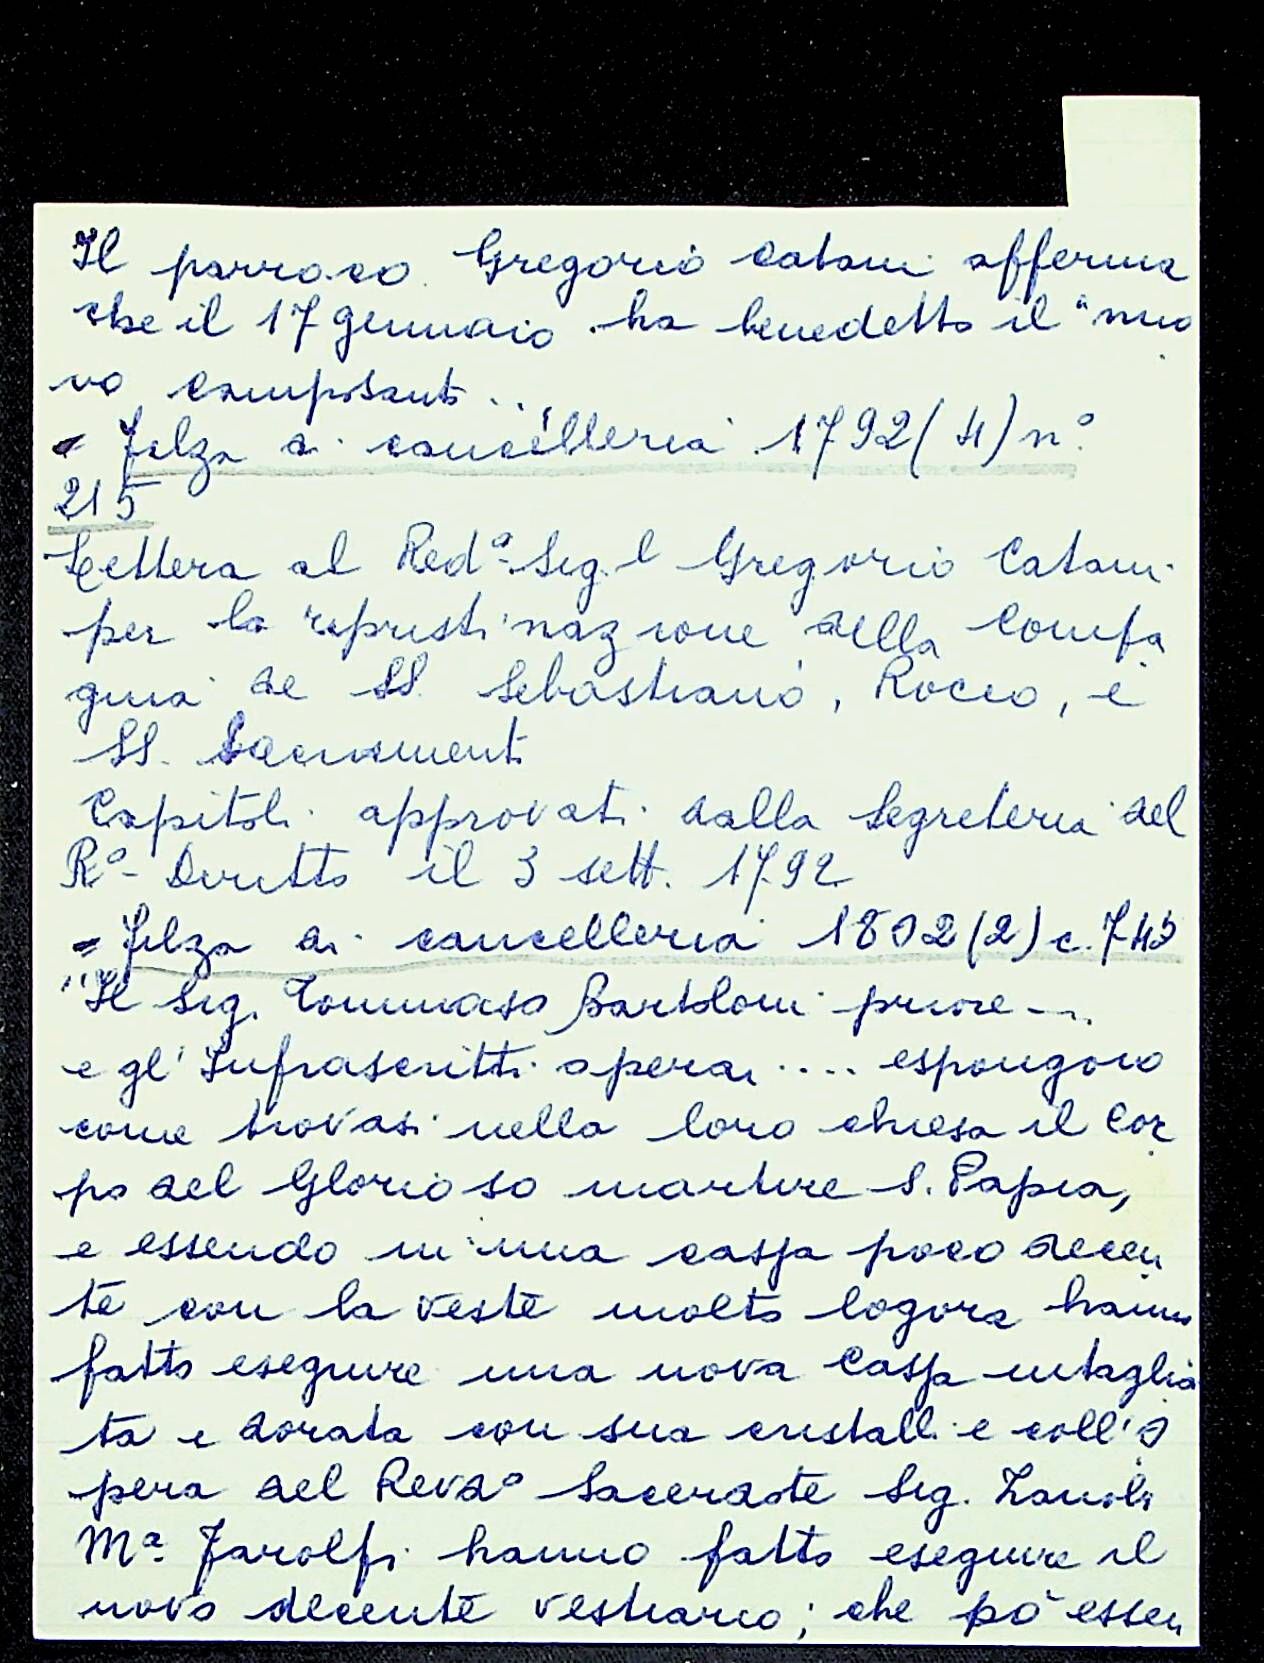 Il parroco Gregorio Catani afferma
che il 17 gennaio ha benedetto il "nuo
vo camposanto...
= Filza di cancelleria 1792(4) n.°
215
Lettera al Red.° Sig.r Gregorio Catani
per la ripristinazione della Compa
gnia de SS. Sebastiano, Rocco, e
SS. Sacramento
Capitoli approvati dalla Segreteria del
R.° Diritto il 3 sett. 1792
= Filza di cancelleria 1802(2) c. 745
"Il Sig. Tommaso Bartoloni priore ...
e gl'Infrascritti operai .... espongono
come trovasi nella loro chiesa il Cor
po del Glorioso martire S. Papia,
e essendo in una cassa poco decen
te con la veste molto logora hanno
fatto eseguire una nova Cassa intaglia
ta e dorata con sua cristalli e coll'o
pera del Revd.° Sacerdote Sig.
M.a Farolfi hanno fatto eseguire il
novo decente vestiario; che pò essen